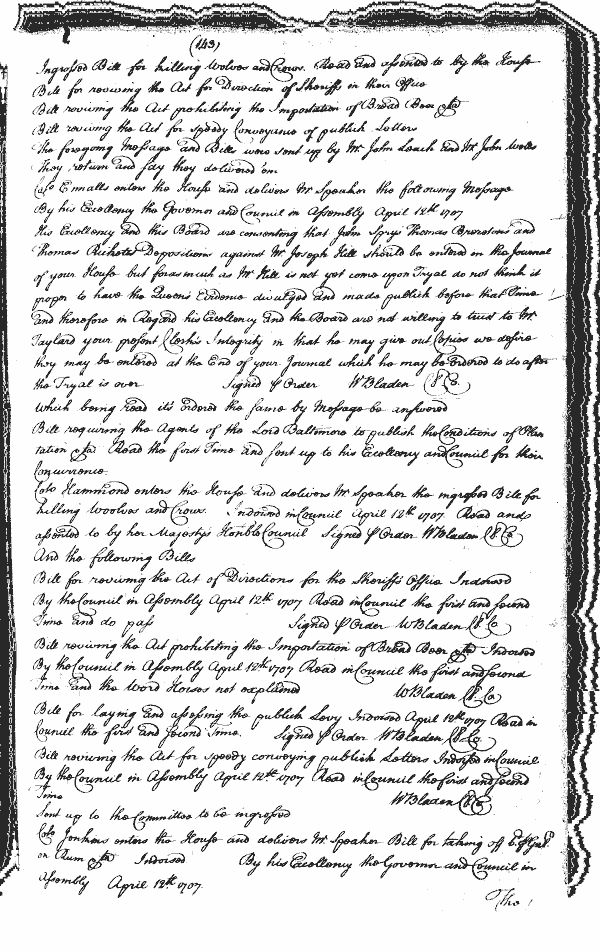 (143)
Ingrossed Bill for killing Wolves and Crows. Read and assented to by the House
Bill for reviving the Act for Direction of Sheriffs in their Office
Bill reviving the Act prohibiting the Importation of Bread Beer &ca
Bill reviving the Act for speedy Conveyance of publick Letters
The foregoing Message and Bills were sent up by Mr John Leach and Mr John Wells
They return and say they delivered 'em
Colo Ennalls enters the House and delivers Mr Speaker the following Message
By his Excellency the Governor and Council in Assembly April 12th 1707
His Excellency and this Board are consenting that John Sprys Thomas Brewetons and
Thomas Rickets Depositions against Mr Joseph Hill should be entered in the Journal
of your House but forasmuch as Mr Hill is not yet come upon Tryal do not think it
proper to have the Queen's Evidence divulged and made publick before that Time
and therefore in Regard his Excellency and the Board are not willing to trust to Mr
Taylard your present Clerk's Integrity in that he may give out Copies we desire
they may be entered at the End of your Journal which he may be ordered to do after
the Tryal is over Signed p Order WBladen Cl Co.
Which being read it's ordered the same by Message be answered
Bill requiring the Agents of the Lord Baltimore to publish the Conditions of Plan
tation &ca Read the first Time and sent up to his Excellency and Council for their
Concurrence.
Colo Hammond enters the House and delivers Mr Speaker the ingrossed Bill for
killing Woolves and Crows. Indorsed in Council April 12th 1707. Read and
assented to by her Majestys Honble Council Signed p Order WBladen Cl Co
And the following Bills
Bill for reviving the Act of Directions for the Sheriff's Office Indorsed
By the Council in Assembly April 12th 1707 Read in Council the first and second
Time and do pass Signed p Order WBladen Cl Co
Bill reviving the Act prohibiting the Importation of Bread Beer &ca Indorsed
By the Council in Assembly April 12th 1707 Read in Council the first and second
Time and the Word Horses not explained WBladen Cl Co.
Bill for laying and assessing the publick Levy Indorsed April 12th 1707 Read in
Council the first and second Time. Signed p Order WBladen Cl Co
Bill reviving the Act for speedy conveying publick Letters Indorsed in Council
By the Council in Assembly April 12th 1707 Read in Council the first and second
Time WBladen Cl Co
Sent up to the Committee to be ingrossed
Colo Jenkins enters the House and delivers Mr Speaker Bill for taking off
on Rum &ca Indorsed By his Excellency the Governor and Council in
Assembly April 12th 1707.
The